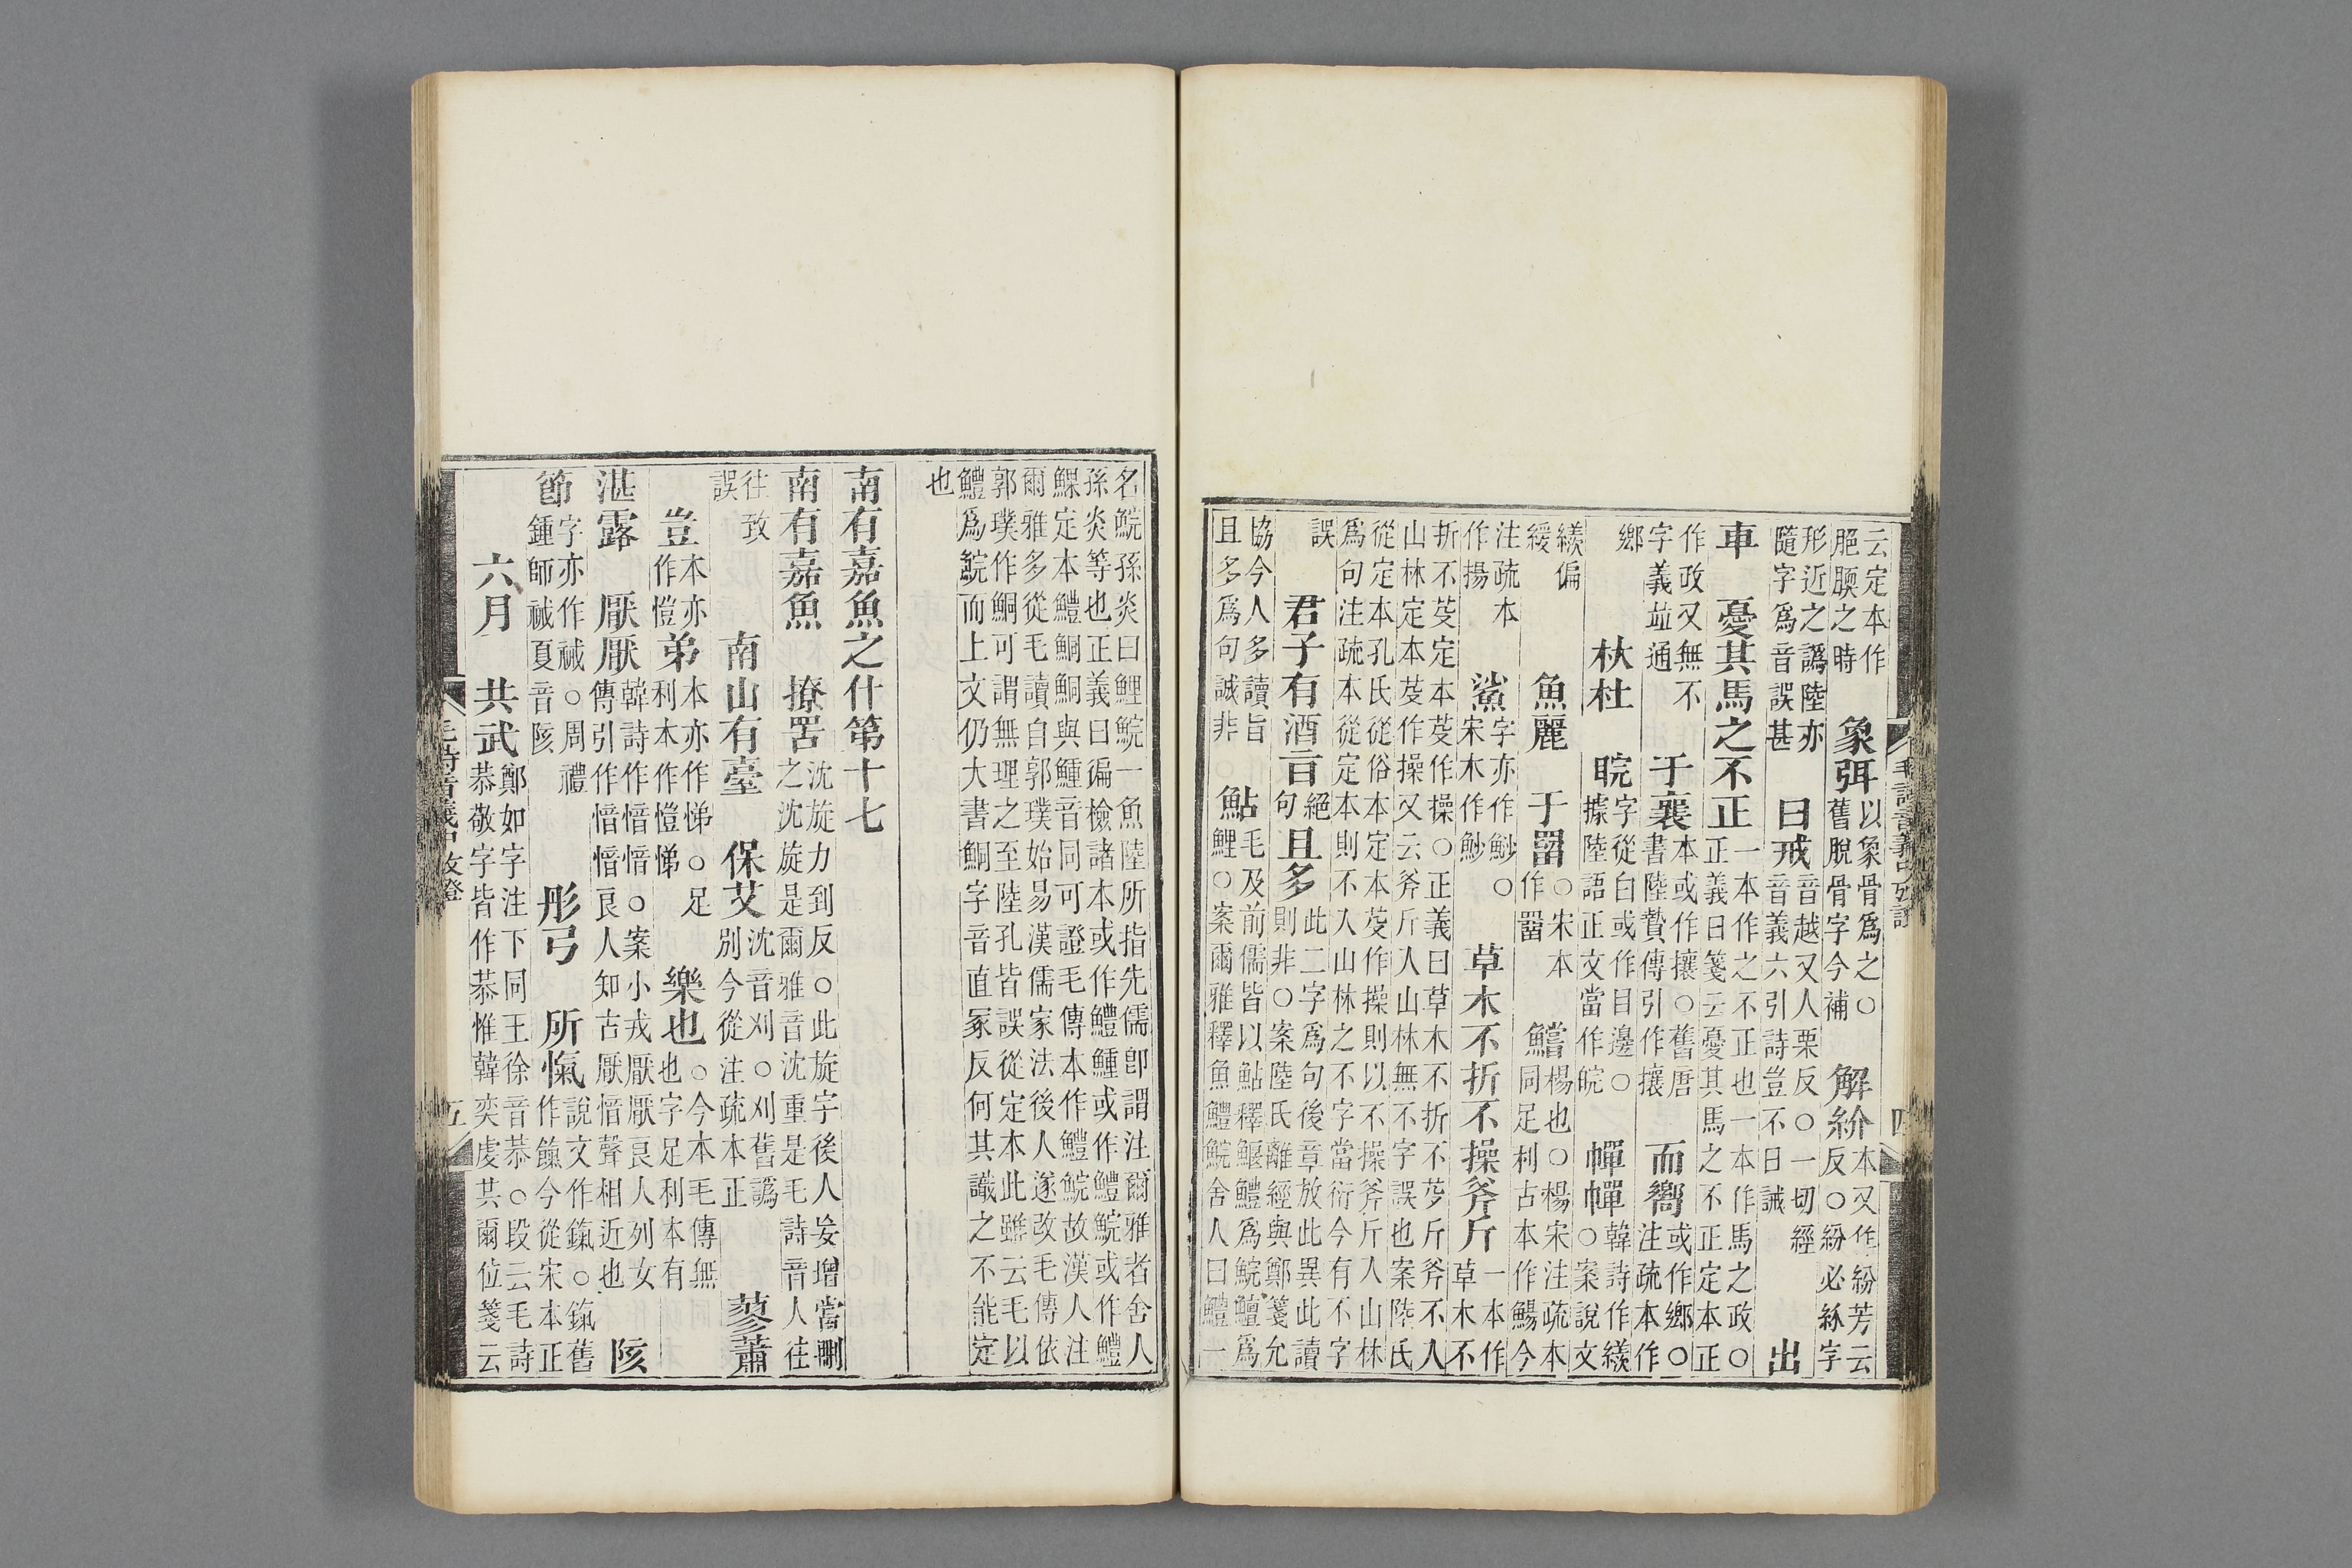 云定本作肥腝之時 象弭 以象骨爲之○舊脫骨字今補 解紒 本又作紛芳云反○紛必紒字
形近之譌陸亦隨字爲音誤甚 曰戒 音越又人栗反○一切經音義六引詩豈不日誡 出
車 憂其馬之不正 一本作之不正也一本作馬之政○正義曰箋云憂其馬之不正定本正
作政又無不字義竝通 于襄 本或作攘○舊唐書陸贄傳引作攘 而嚮 或作鄉○注疏本作
鄉 杕杜 睆 字從白或作目邊○據陸語正文當作皖 幝幝 韓詩作繎○案說文
繎偏緩 魚麗 于罶 ○宋本作罶 鱨 楊也○楊宋注疏本同足利古本作鱨今
注疏本作揚 鯊 字亦作魦○宋本作魦 草木不折不操斧斤 一本作草木不
折不芟定本芟作操○正義曰草木不折不芟斤斧不入山林定本芟作操又云斧斤入山林無不字誤也案陸氏
從定本孔氏從俗本定本芟作操則以不操斧斤入山林爲句注疏本從定本則不入山林之不字當衍今有不字
誤 君子有酒旨 絕句 且多 此二字爲句後章放此異此讀則非○案陸氏離經與鄭箋允
協今人多讀旨且多爲句誠非 鮎 毛及前儒皆以鮎釋鰋鱧爲鯇鱣爲鯉○案爾雅釋魚鱧鯇舍人曰鱧一
毛詩音義中攷證 四
名鯇孫炎曰鯉鯇一魚陸所指先儒卽謂注爾雅者舍人孫炎等也正義曰徧檢諸本或作鱧鯶或作鱧鯇或作鱧
鰥定本鱧鮦鮦與鯶音同可證毛傳本作鱧鯇故漢人注爾雅多從毛讀自郭璞始易漢儒家法後人遂改毛傳依
郭璞作鮦可謂無理之至陸孔皆誤從定本此雖云毛以鱧爲鯇而上文仍大書鮦字音直冢反何其識之不能定
也
南有嘉魚之什第十七
南有嘉魚 撩罟 沈旋力到反○此旋字後人妄增當刪之沈旋是爾雅音沈重是毛詩音人往
往致誤 南山有臺 保艾 沈音刈○刈舊譌別今從注疏本正 蓼蕭
豈 本亦作愷 弟 本亦作悌○足利本作愷悌 樂也 ○今本毛傳無也字足利本有
湛露 厭厭 韓詩作愔愔○案小戎厭厭良人列女傳引作愔愔良人知古厭愔聲相近也 陔
節 字亦作祴○周禮鍾師祴夏音陔 彤弓 所愾 說文作鎎○鎎舊作餼今從宋本正
六月 共武 鄭如字注下同王徐音恭○段云毛詩恭敬字皆作恭惟韓奕虔共爾位箋云
毛詩音義中攷證 五